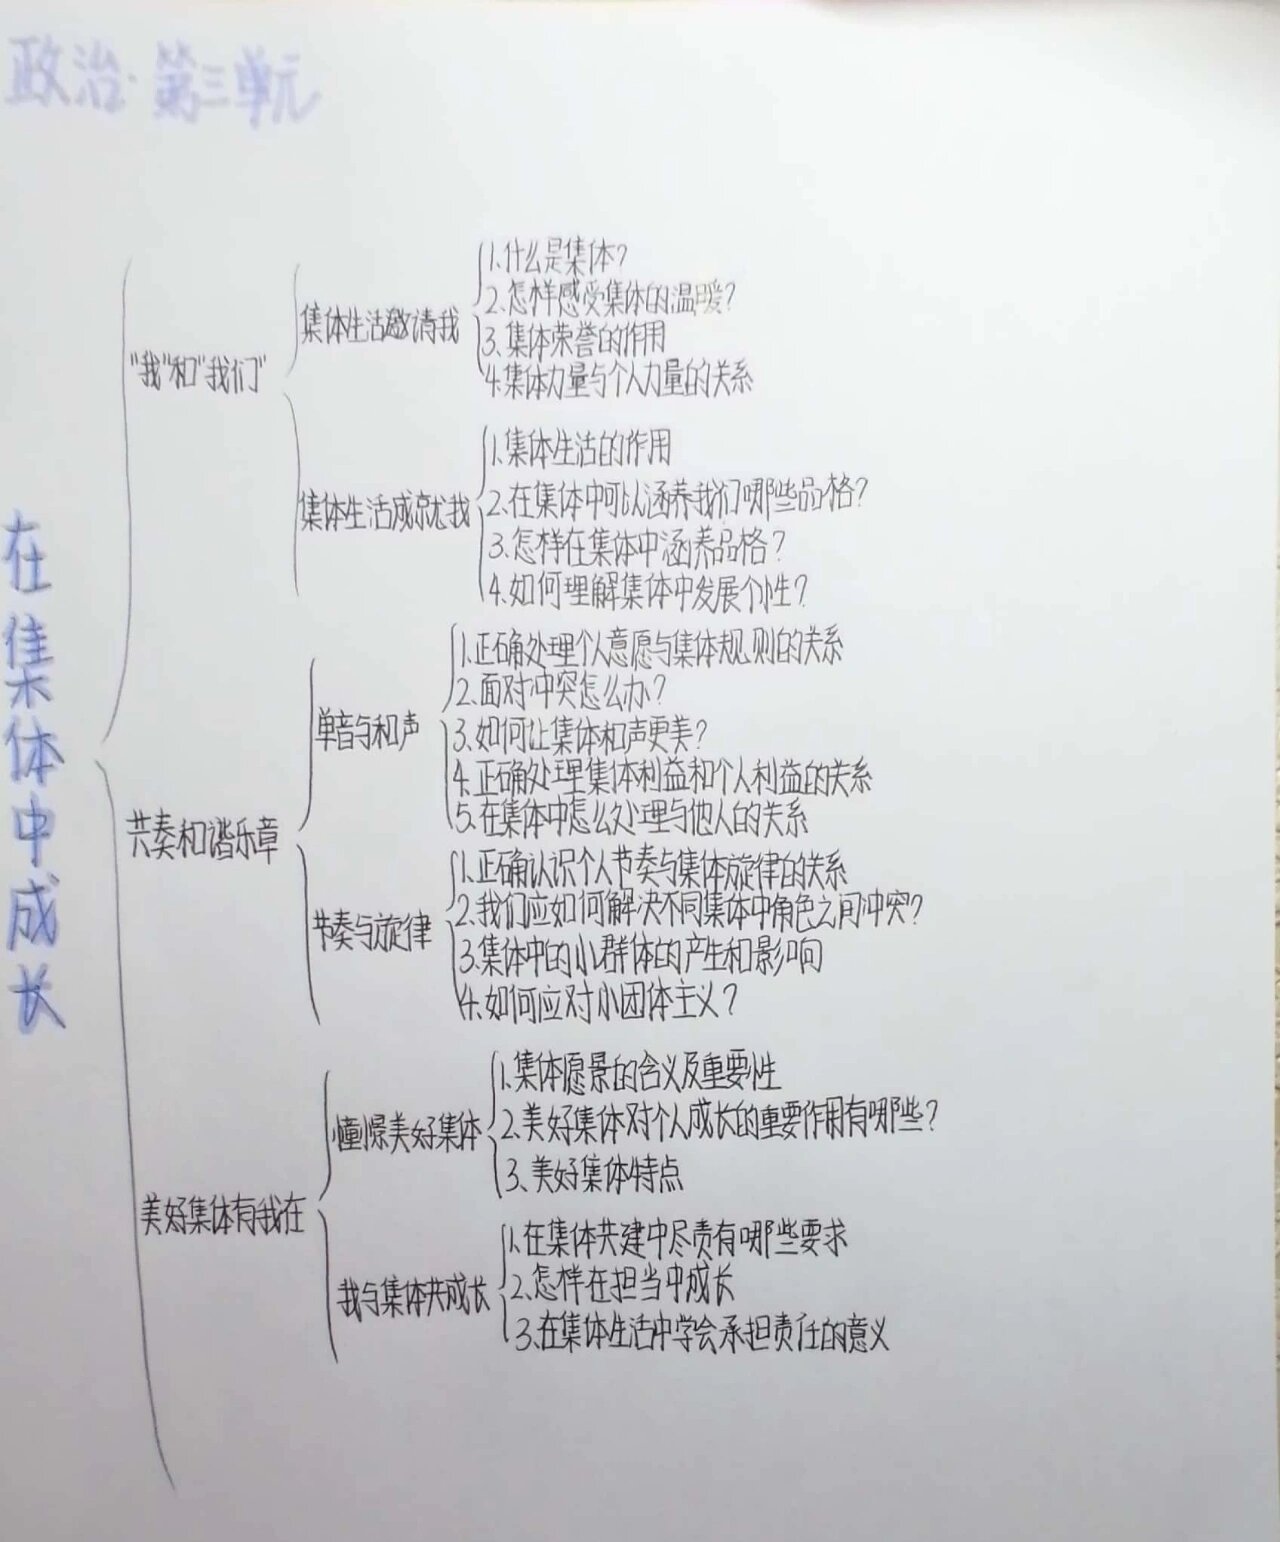 政治·第三单元
在集体中成长
"我"和"我们"
集体生活邀请我
1.什么是集体?
2.怎样感受集体的温暖?
3.集体荣誉的作用
4.集体力量与个人力量的关系
集体生活成就我
1.集体生活的作用
2.在集体中可以涵养我们哪些品格?
3.怎样在集体中涵养品格?
4.如何理解集体中发展个性?
共奏和谐乐章
单音与和声
1.正确处理个人意愿与集体规则的关系
2.面对冲突怎么办?
3.如何让集体和声更美?
4.正确处理集体利益和个人利益的关系
5.在集体中怎么处理与他人的关系
节奏与旋律
1.正确认识个人节奏与集体旋律的关系
2.我们应如何解决不同集体中角色之间冲突?
3.集体中的小群体的产生和影响
4.如何应对小团体主义?
美好集体有我在
憧憬美好集体
1.集体愿景的含义及重要性
2.美好集体对个人成长的重要作用有哪些?
3、美好集体特点
我与集体共成长
1.在集体共建中尽责有哪些要求
2.怎样在担当中成长
3.在集体生活中学会承担责任的意义